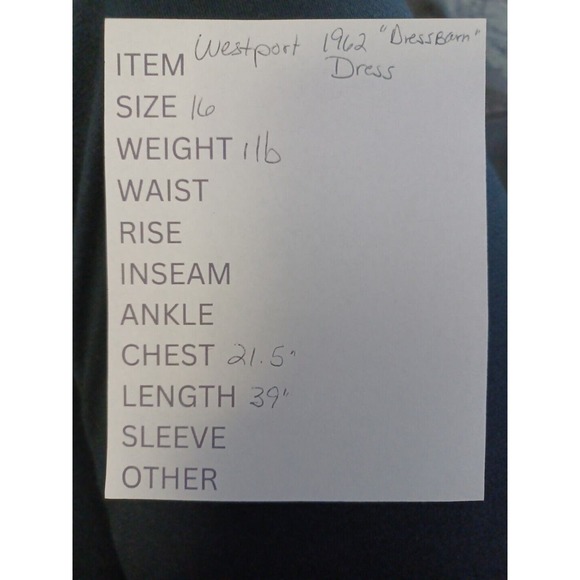 ITEM Westport 1962 "DressBarn"
Dress
SIZE 16
WEIGHT 1lb
WAIST
RISE
INSEAM
ANKLE
CHEST 21.5"
LENGTH 39"
SLEEVE
OTHER